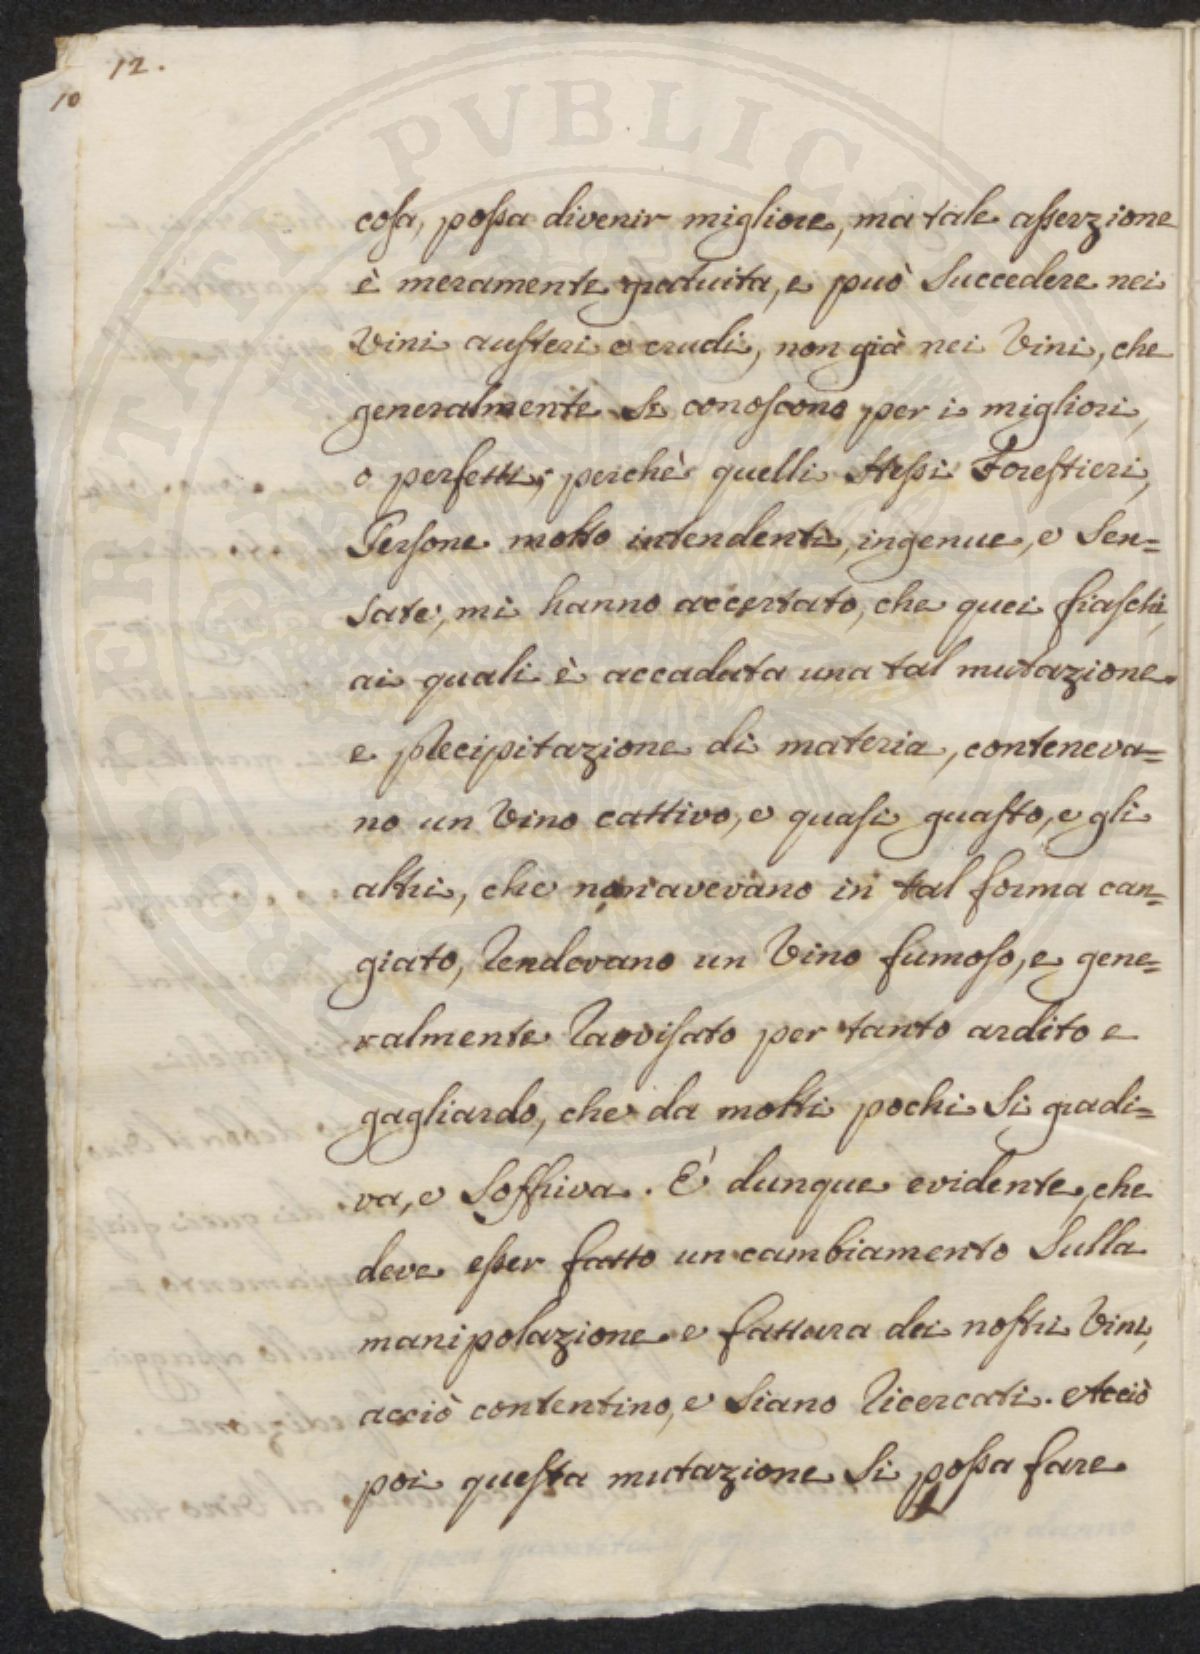 12.
10
PVBLICAE
PROSPERITATI
cosa, possa divenir migliore, ma tale asserzione
è meramente gratuita, e può succedere nei
Vini austeri e crudi, non già nei Vini, che
generalmente si conoscono per i migliori,
o perfetti; perchè quelli stessi Forestieri,
Persone molto intendenti, ingenue, e sen=
sate, mi hanno accertato, che quei fiaschi,
ai quali è accaduta una tal mutazione
e precipitazione di materia, conteneva=
no un Vino cattivo, e quasi guasto, e gli
altri, che non avevano in tal forma can=
giato, rendevano un Vino fumoso, e gene=
ralmente ravvisato per tanto ardito e
gagliardo, che da molti pochi si gradi=
va, e soffriva. È dunque evidente, che
deve esser fatto un cambiamento sulla
manipolazione e fattura dei nostri Vini,
acciò contentino, e siano ricercati. Acciò
poi questa mutazione si possa fare